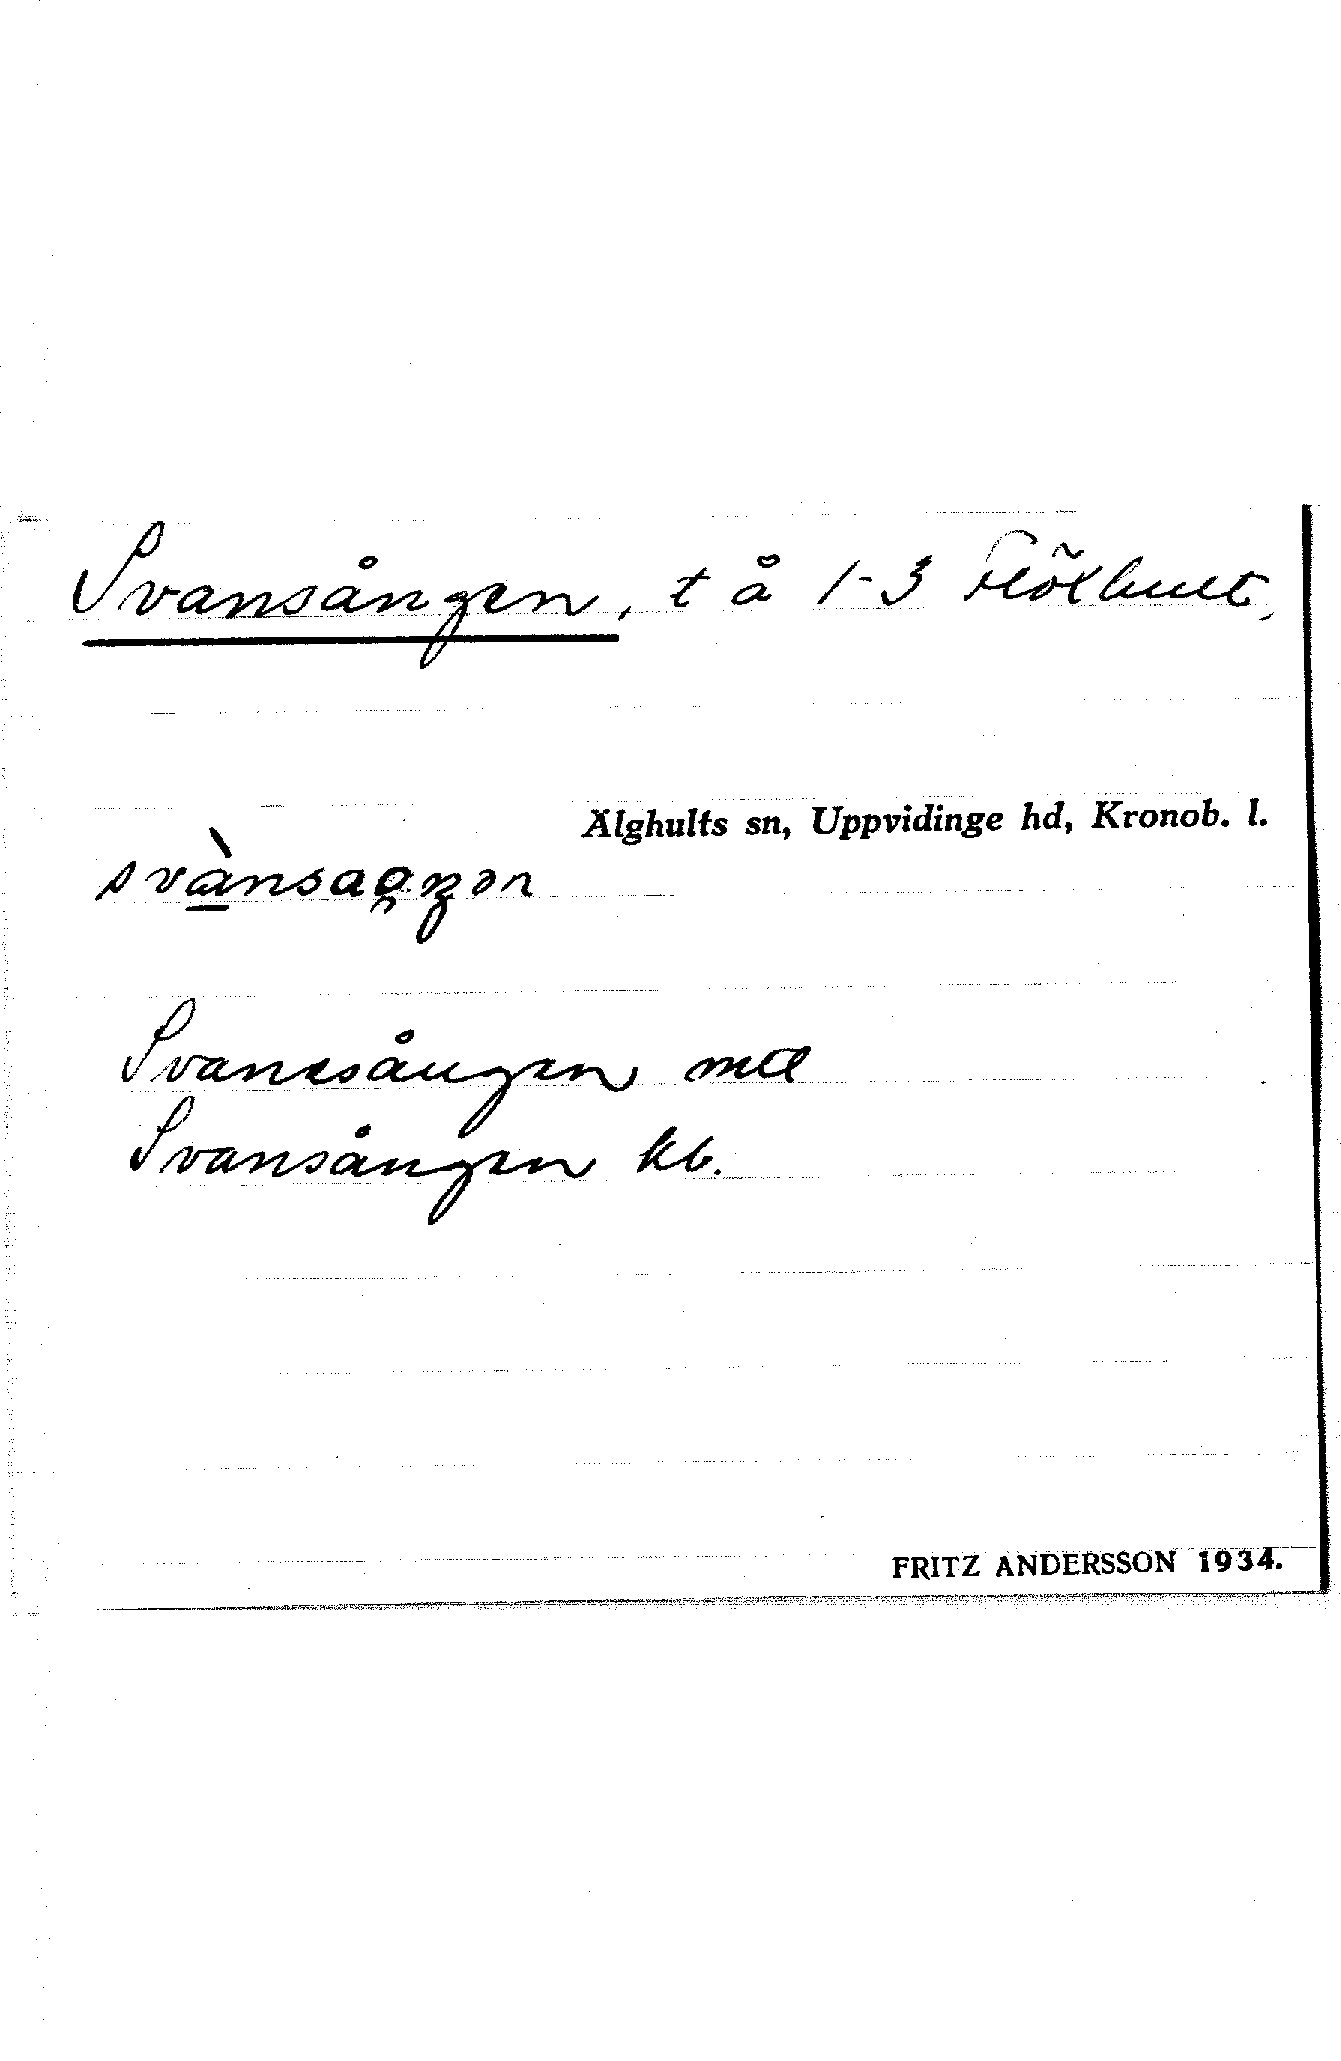 Svansången, t å 1-3 Flöxhult,
Älghults sn, Uppvidinge hd, Kronob. l.
Svanesången mtl
Svansången kb.
FRITZ ANDERSSON 1934.